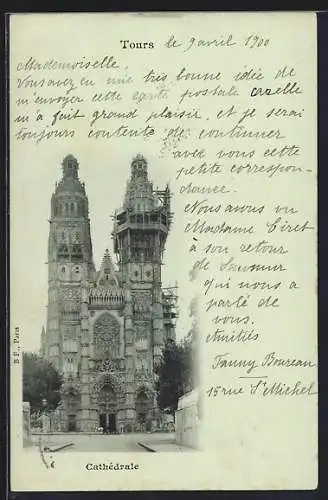 Tours le 9 avril 1900
Mademoiselle.
Vous avez eu une très bonne idée de
m'envoyer cette carte postale car elle
m'a fait grand plaisir, et je serai
toujours contente de continuer
avec vous cette
petite correspon-
dance.
Nous avons vu
Madame Ciret
à son retour
de Saumur
qui nous a
parlé de
vous.
Amitiés
Fanny Boureau
15 rue St Michel
B F, Paris
Cathédrale